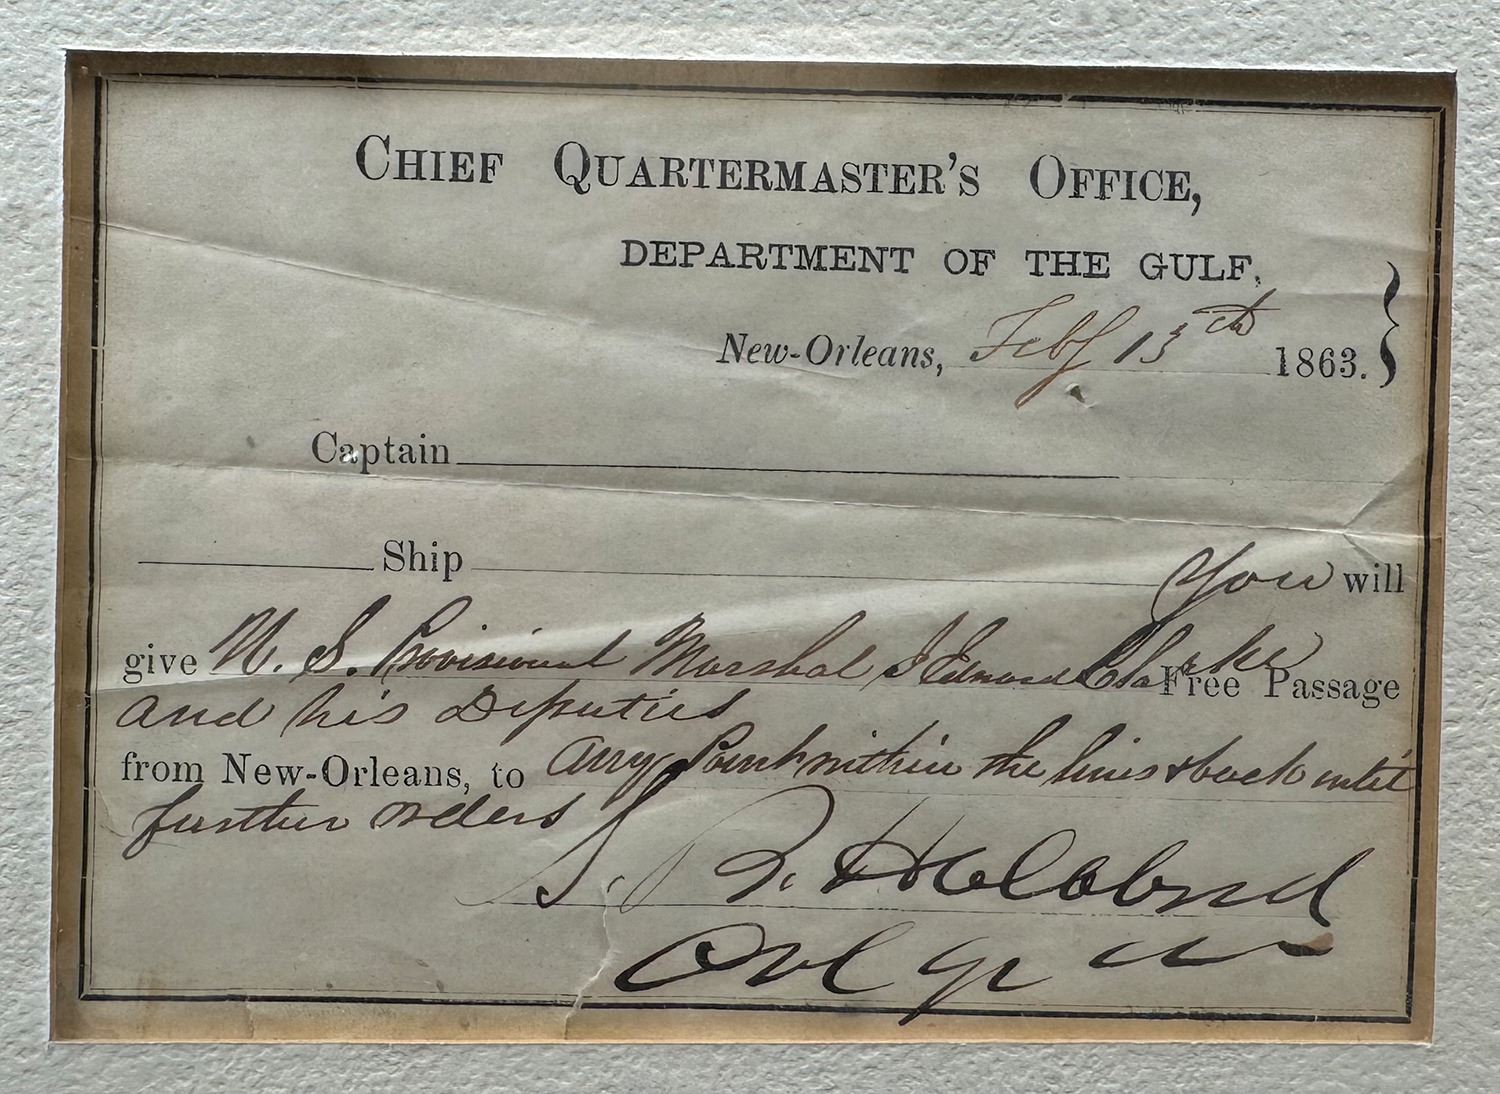 CHIEF QUARTERMASTER'S OFFICE,
DEPARTMENT OF THE GULF,
New-Orleans, Feby 13th 1863.
Captain
Ship You will
give U. S. Provisional Marshal J Edward Clarke Free Passage
and his Deputies
from New-Orleans, to any Point within the lines & back until
further orders
S. B. Holabird
Col